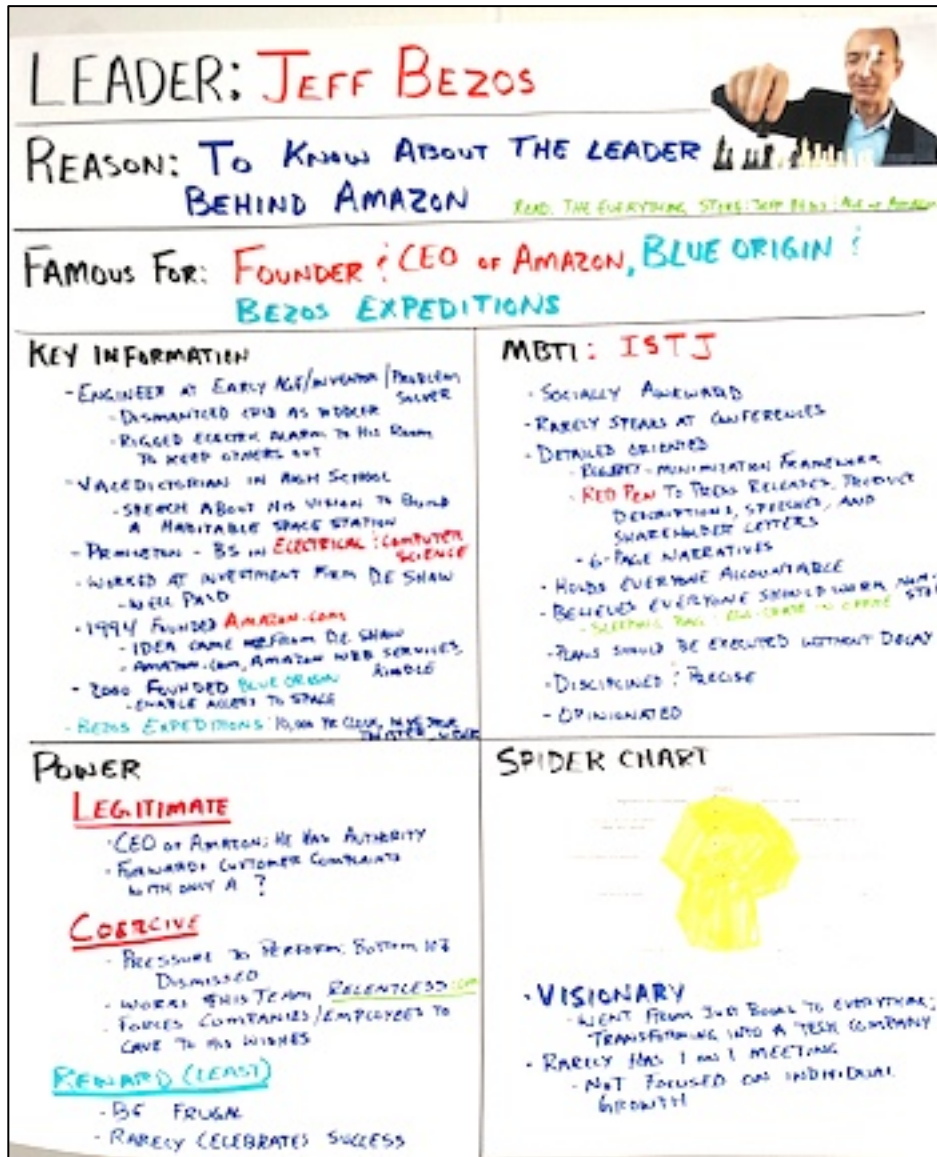 LEADER: JEFF BEZOS
REASON: TO KNOW ABOUT THE LEADER
BEHIND AMAZON
READ: THE EVERYTHING STORE: JEFF BEZOS : AGE OF AMAZON
FAMOUS FOR: FOUNDER & CEO OF AMAZON, BLUE ORIGIN &
BEZOS EXPEDITIONS
KEY INFORMATION
- ENGINEER AT EARLY AGE/INVENTOR/PROBLEM
SOLVER
- DISMANTLED CRIB AS TODDLER
- RIGGED ELECTRIC ALARM TO HIS ROOM
TO KEEP OTHERS OUT
- VALEDICTORIAN IN HIGH SCHOOL
- SPEECH ABOUT HIS VISION TO BUILD
A HABITABLE SPACE STATION
- PRINCETON - BS IN ELECTRICAL & COMPUTER
SCIENCE
- WORKED AT INVESTMENT FIRM D.E SHAW
- WELL PAID
- 1994 FOUNDED AMAZON.COM
- IDEA CAME FROM D.E. SHAW
- AMAZON.COM, AMAZON WEB SERVICES,
KINDLE
- 2000 FOUNDED BLUE ORIGIN
- ENABLE ACCESS TO SPACE
- BEZOS EXPEDITIONS: 10,000 YR CLOCK,
TWITTER, UBER
MBTI: ISTJ
- SOCIALLY AWKWARD
- RARELY SPEAKS AT CONFERENCES
- DETAILED ORIENTED
- REGRET-MINIMIZATION FRAMEWORK
- RED PEN TO PRESS RELEASES, PRODUCT
DESCRIPTIONS, SPEECHES, AND
SHAREHOLDER LETTERS
- 6-PAGE NARRATIVES
- HOLDS EVERYONE ACCOUNTABLE
- BELIEVES EVERYONE SHOULD WORK NON-
STOP
- SLEEPING BAG & EGG-CRATE IN OFFICE
- PLANS SHOULD BE EXECUTED WITHOUT DELAY
- DISCIPLINED & PRECISE
- OPINIONATED
POWER
LEGITIMATE
- CEO OF AMAZON; HE HAS AUTHORITY
- FORWARDS CUSTOMER COMPLAINTS
WITH ONLY A ?
COERCIVE
- PRESSURE TO PERFORM; BOTTOM 10%
DISMISSED
- WORKS HIS TEAM RELENTLESS.COM
- FORCES COMPANIES/EMPLOYEES TO
CAVE TO HIS WISHES
REWARD (LEAST)
- BE FRUGAL
- RARELY CELEBRATES SUCCESS
SPIDER CHART
- VISIONARY
- WENT FROM JUST BOOKS TO EVERYTHING;
TRANSFORMING INTO A TECH COMPANY
- RARELY HAS 1 ON 1 MEETING
- NOT FOCUSED ON INDIVIDUAL
GROWTH